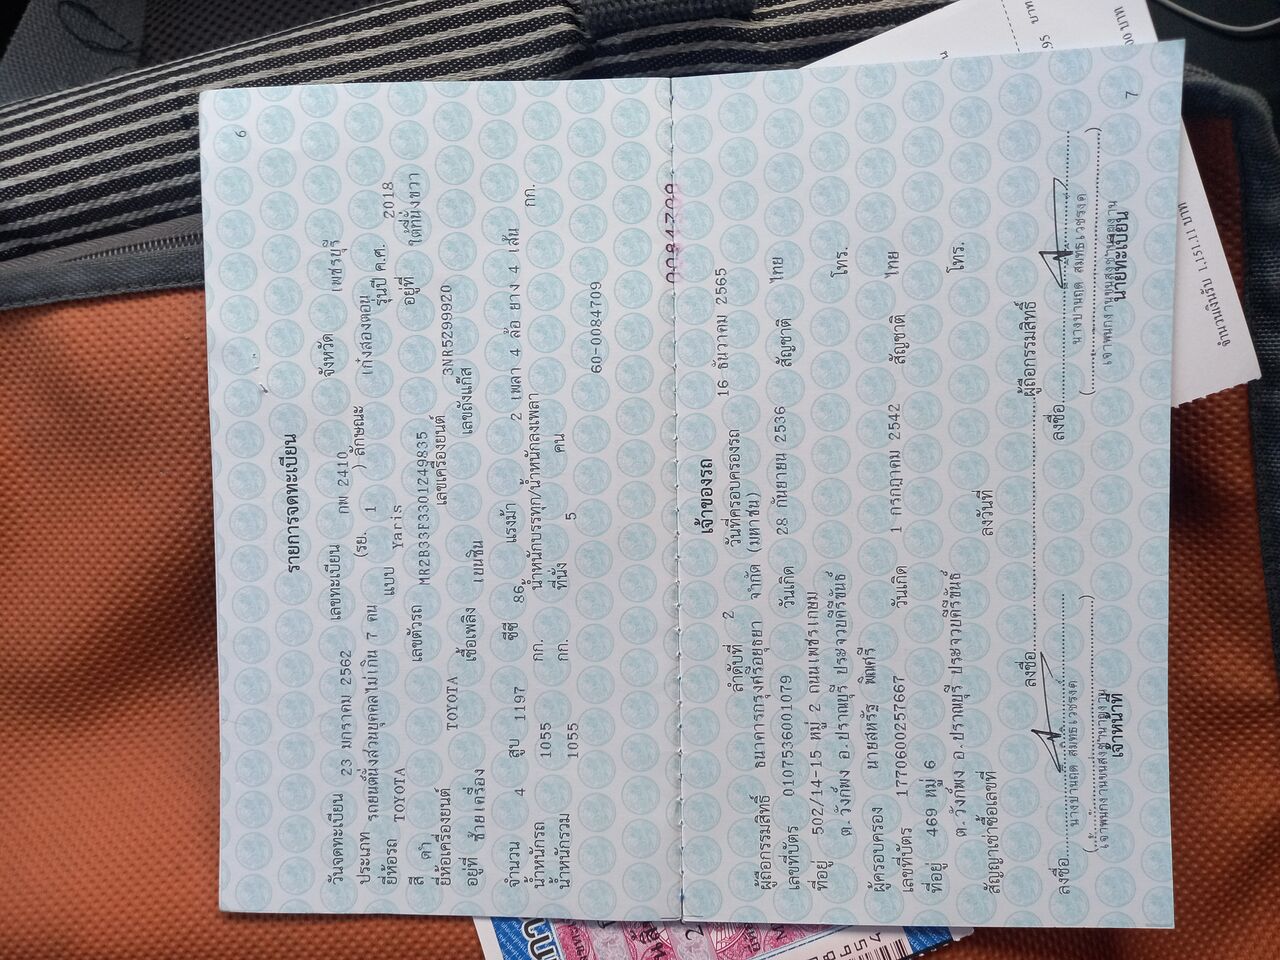 6
รายการจดทะเบียน
วันจดทะเบียน 23 มกราคม 2562 เลขทะเบียน กพ 2410 จังหวัด เพชรบุรี
ประเภท รถยนต์นั่งส่วนบุคคลไม่เกิน 7 คน (รย. 1 ) ลักษณะ เก๋งสองตอน
ยี่ห้อรถ TOYOTA แบบ Yaris รุ่นปี ค.ศ. 2018
สี ดำ เลขตัวรถ MR2B33F3301249835 อยู่ที่ ใต้ที่นั่งขวา
ยี่ห้อเครื่องยนต์ TOYOTA เลขเครื่องยนต์ 3NR5299920
อยู่ที่ ซ้ายเครื่อง เชื้อเพลิง เบนซิน เลขถังแก๊ส
จำนวน 4 สูบ 1197 ซีซี 86 แรงม้า 2 เพลา 4 ล้อ ยาง 4 เส้น
น้ำหนักรถ 1055 กก. น้ำหนักบรรทุก/น้ำหนักลงเพลา กก.
น้ำหนักรวม 1055 กก. ที่นั่ง 5 คน
60-0084709
0084709
เจ้าของรถ
ลำดับที่ 2 วันที่ครอบครองรถ 16 ธันวาคม 2565
ผู้ถือกรรมสิทธิ์ ธนาคารกรุงศรีอยุธยา จำกัด (มหาชน)
เลขที่บัตร 0107536001079 วันเกิด 28 กันยายน 2536 สัญชาติ ไทย
ที่อยู่ 502/14-15 หมู่ 2 ถนนเพชรเกษม
ต.วังก์พง อ.ปราณบุรี ประจวบคีรีขันธ์ โทร.
ผู้ครอบครอง นายสหรัฐ พิณศรี
เลขที่บัตร 1770600257667 วันเกิด 1 กรกฎาคม 2542 สัญชาติ ไทย
ที่อยู่ 469 หมู่ 6
ต.วังก์พง อ.ปราณบุรี ประจวบคีรีขันธ์ โทร.
สัญญาเช่าซื้อเลขที่ ลงวันที่
ลงชื่อ ผู้ถือกรรมสิทธิ์
ลงชื่อ ลงชื่อ
เจ้าหน้าที่ นายทะเบียน
7
95 บาท
00 บาท
จำนวนเงินรับ 1,151.11 บาท